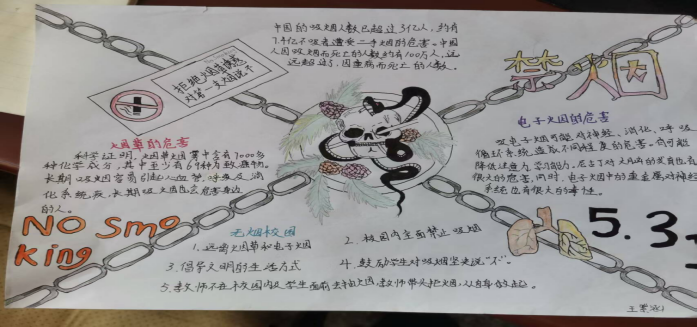 中国的吸烟人数已超过3亿人，约有
7.4亿不吸者遭受二手烟的危害。中国
人因吸烟而死亡的人数约有100万人，远
远超过了因患病而死亡的人数。
禁烟
拒绝烟草诱惑
对第一支烟说不
烟草的危害
科学证明，烟草烟雾中含有7000多
种化学成分，其中至少有69种为致癌物。
长期吸烟容易引起心血管、呼吸及消
化系统疾
长期吸烟也会危害身边
的人。
电子烟的危害
吸电子烟可能对神经、消化、呼吸
循环系统造成不同程度的伤害。会可能
降低注意力、学习能力，
很大的危害，同时，电子烟中的重金属对神经
系统也有很大的毒性。
NO Smo
king
无烟校园
1.远离烟草和电子烟
2.校园内全面禁止吸烟
3.倡导文明的生活方式
4.鼓励学生对吸烟坚决说“不”。
5.教师不在校园内及学生面前去抽烟，教师带头拒烟，从自身做起。
5.3